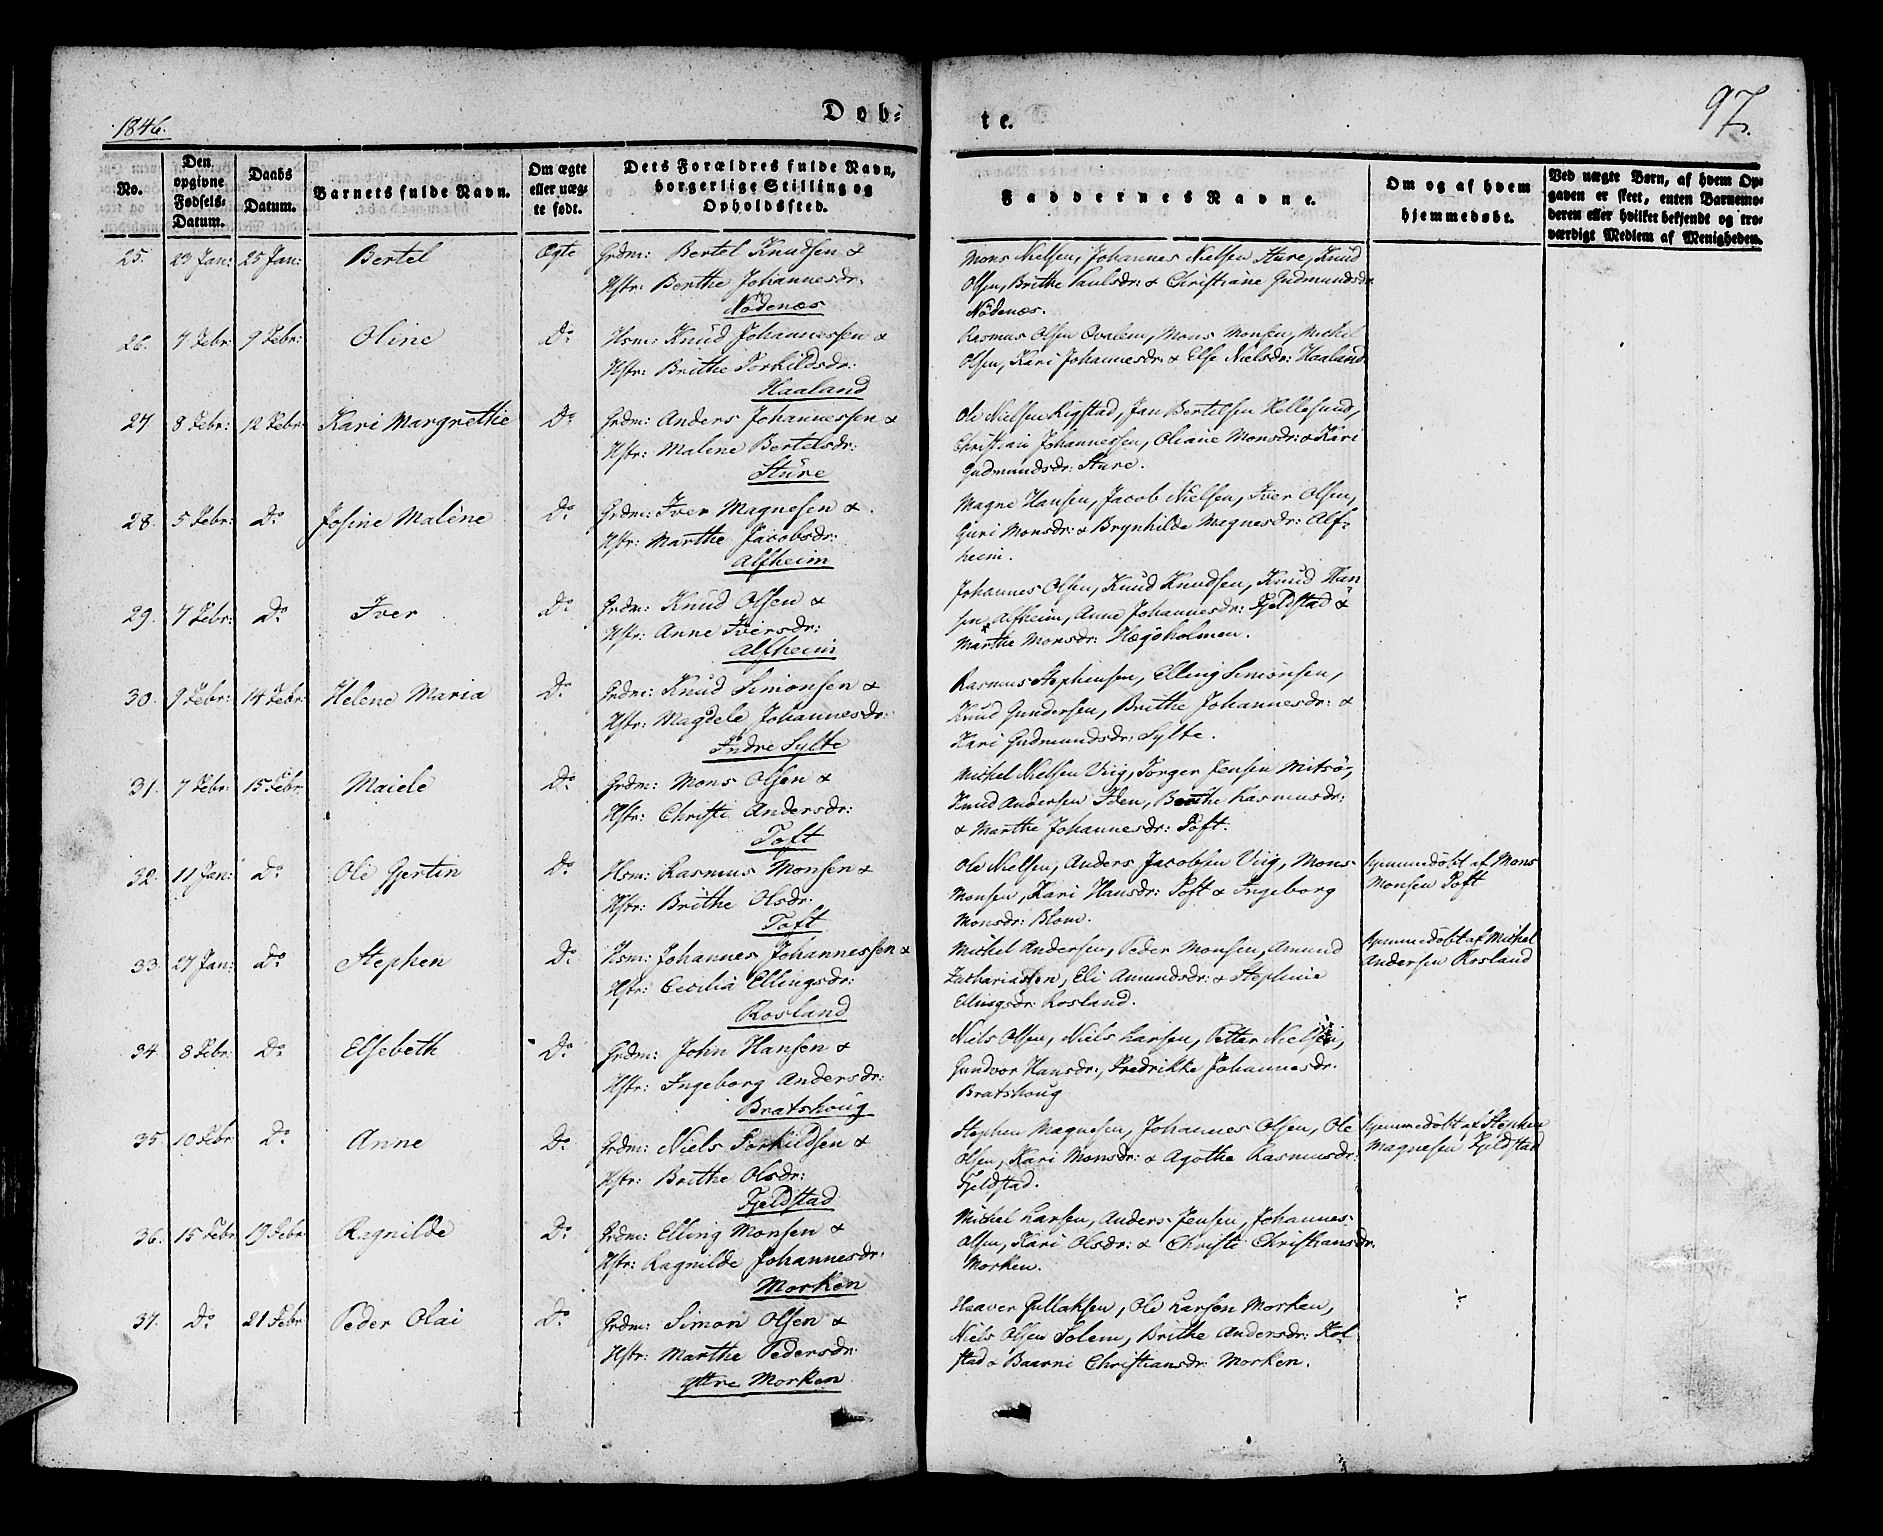 1846.
Døb-
te.
97.
No.
Den opgivne Fødsels-Datum.
Daabs Datum.
Barnets fulde Navn.
Om ægte eller uæg-te født.
Dets Forældres fulde Navn, borgerlige Stilling og Opholdssted.
Faddernes Navne.
Om og af hvem hjemmedøbt.
Ved uægte Børn, af hvem Op-gaven er skeet, enten Barnemo-deren eller hvilket bekjendt og tro-værdigt Medlem af Menigheden.
25. 23 Jan: 25 Jan: Bertel Ægte Grdm: Bertel Knudsen &
Hstr: Berthe Johannesdr:
Nödenæs
Mons Nielsen, Johannes Nielsen Sture, Knud
Olsen, Brithe Paulsdr: & Christiane Gudmundsdr
Nödenæs.
26. 7 Febr: 9 Febr: Oline Do Hsm: Knud Johannessen &
Hstr: Brithe Torkildsdr:
Haaland
Rasmus Olsen Qvalem, Mons Monsen, Michel
Olsen, Kari Johannesdr: & Else Nielsdr: Haaland
27 8 Febr: 12 Febr Kari Margrethe Do Grdm: Anders Johannessen &
Hstr: Malene Bertelsdr:
Sture
Ole Nielsen Rigstad, Jan Bertelsen Hellesund,
Christian Johannessen, Oliane Monsdr: & Kari
Gudmundsdr: Sture.
28. 5 Febr: Do Josine Malene Do Grdm: Iver Magnesen &
Hstr: Marthe Jacobsdr:
Alfheim
Magne Hansen, Jacob Nielsen, Iver Olsen,
Guri Monsdr: & Brynhilde Megnesdr: Alf-
heim.
29. 7 Febr: Do Iver Do Grdm: Knud Olsen &
Hstr: Anne Iversdr:
Alfheim
Johannes Olsen, Knud Knudsen, Knud Han-
sen Alfheim, Anne Johannesdr: Fjeldstad &
Marthe Monsdr: Hægöholmen.
30. 9 Febr: 14 Febr Helene Maria Do Grdm: Knud Simonsen &
Hstr: Magdele Johannesdr:
Indre Sylte
Rasmus Stephensen, Elling Simonsen,
Knud Gundersen, Brithe Johannesdr: &
Kari Gudmundsdr: Sylte.
31. 7 Febr: 15 Febr Maiele Do Grdm: Mons Olsen &
Hstr: Christi Andersdr:
Toft
Michel Nielsen Viig, Torger Jensen Mitsö,
Knud Andersen Iden, Berthe Rasmusdr:
& Marthe Johannesdr: Toft.
32. 11 Jan: Do Ole Gjertin Do Hsm: Rasmus Monsen &
Hstr: Brithe Olsdr:
Toft
Ole Nielsen, Anders Jacobsen Viig, Mons
Monsen, Kari Hansdr: Toft & Ingeborg
Monsdr: Blom.
hjemmedöbt af Mons
Monsen Toft
33. 27 Jan: Do Stephen Do Hsm: Johannes Johannessen &
Hstr: Cecilia Ellingsdr:
Rosland
Michel Andersen, Peder Monsen, Amund
Zachariassen, Eli Amundsdr: & Stephine
Ellingsdr: Rosland.
hjemmedöbt af Michel
Andersen Rosland
34. 8 Febr: Do Elsebeth Do Grdm: John Hansen &
Hstr: Ingeborg Andersdr:
Bratshoug
Niels Olsen, Niels Larsen, Petter Nielsen,
Gundvor Hansdr:, Fredrikke Johannesdr:
Bratshoug
35. 10 Febr Do Anne Do Grdm: Niels Torkildsen &
Hstr: Brithe Olsdr:
Fjeldstad
Stephen Magnesen, Johannes Olsen, Ole
Olsen, Kari Monsdr: & Agathe Rasmusdr:
Fjeldstad.
hjemmedöbt af Stephen
Magnesen Fjeldstad
36. 15 Febr 19 Febr Ragnilde Do Grdm: Elling Monsen &
Hstr: Ragnilde Johannesdr:
Morken
Michel Larsen, Anders Jensen, Johannes
Olsen, Kari Olsdr: & Christi Christiansdr.
Morken.
37. Do 21 Febr Peder Olai Do Grdm: Simon Olsen &
Hstr: Marthe Pedersdr:
Yttre Morken
Haaver Gullaksen, Ole Larsen Morken,
Niels Olsen Solem, Brithe Andersdr: Kol-
stad & Baarni Christiansdr: Morken.